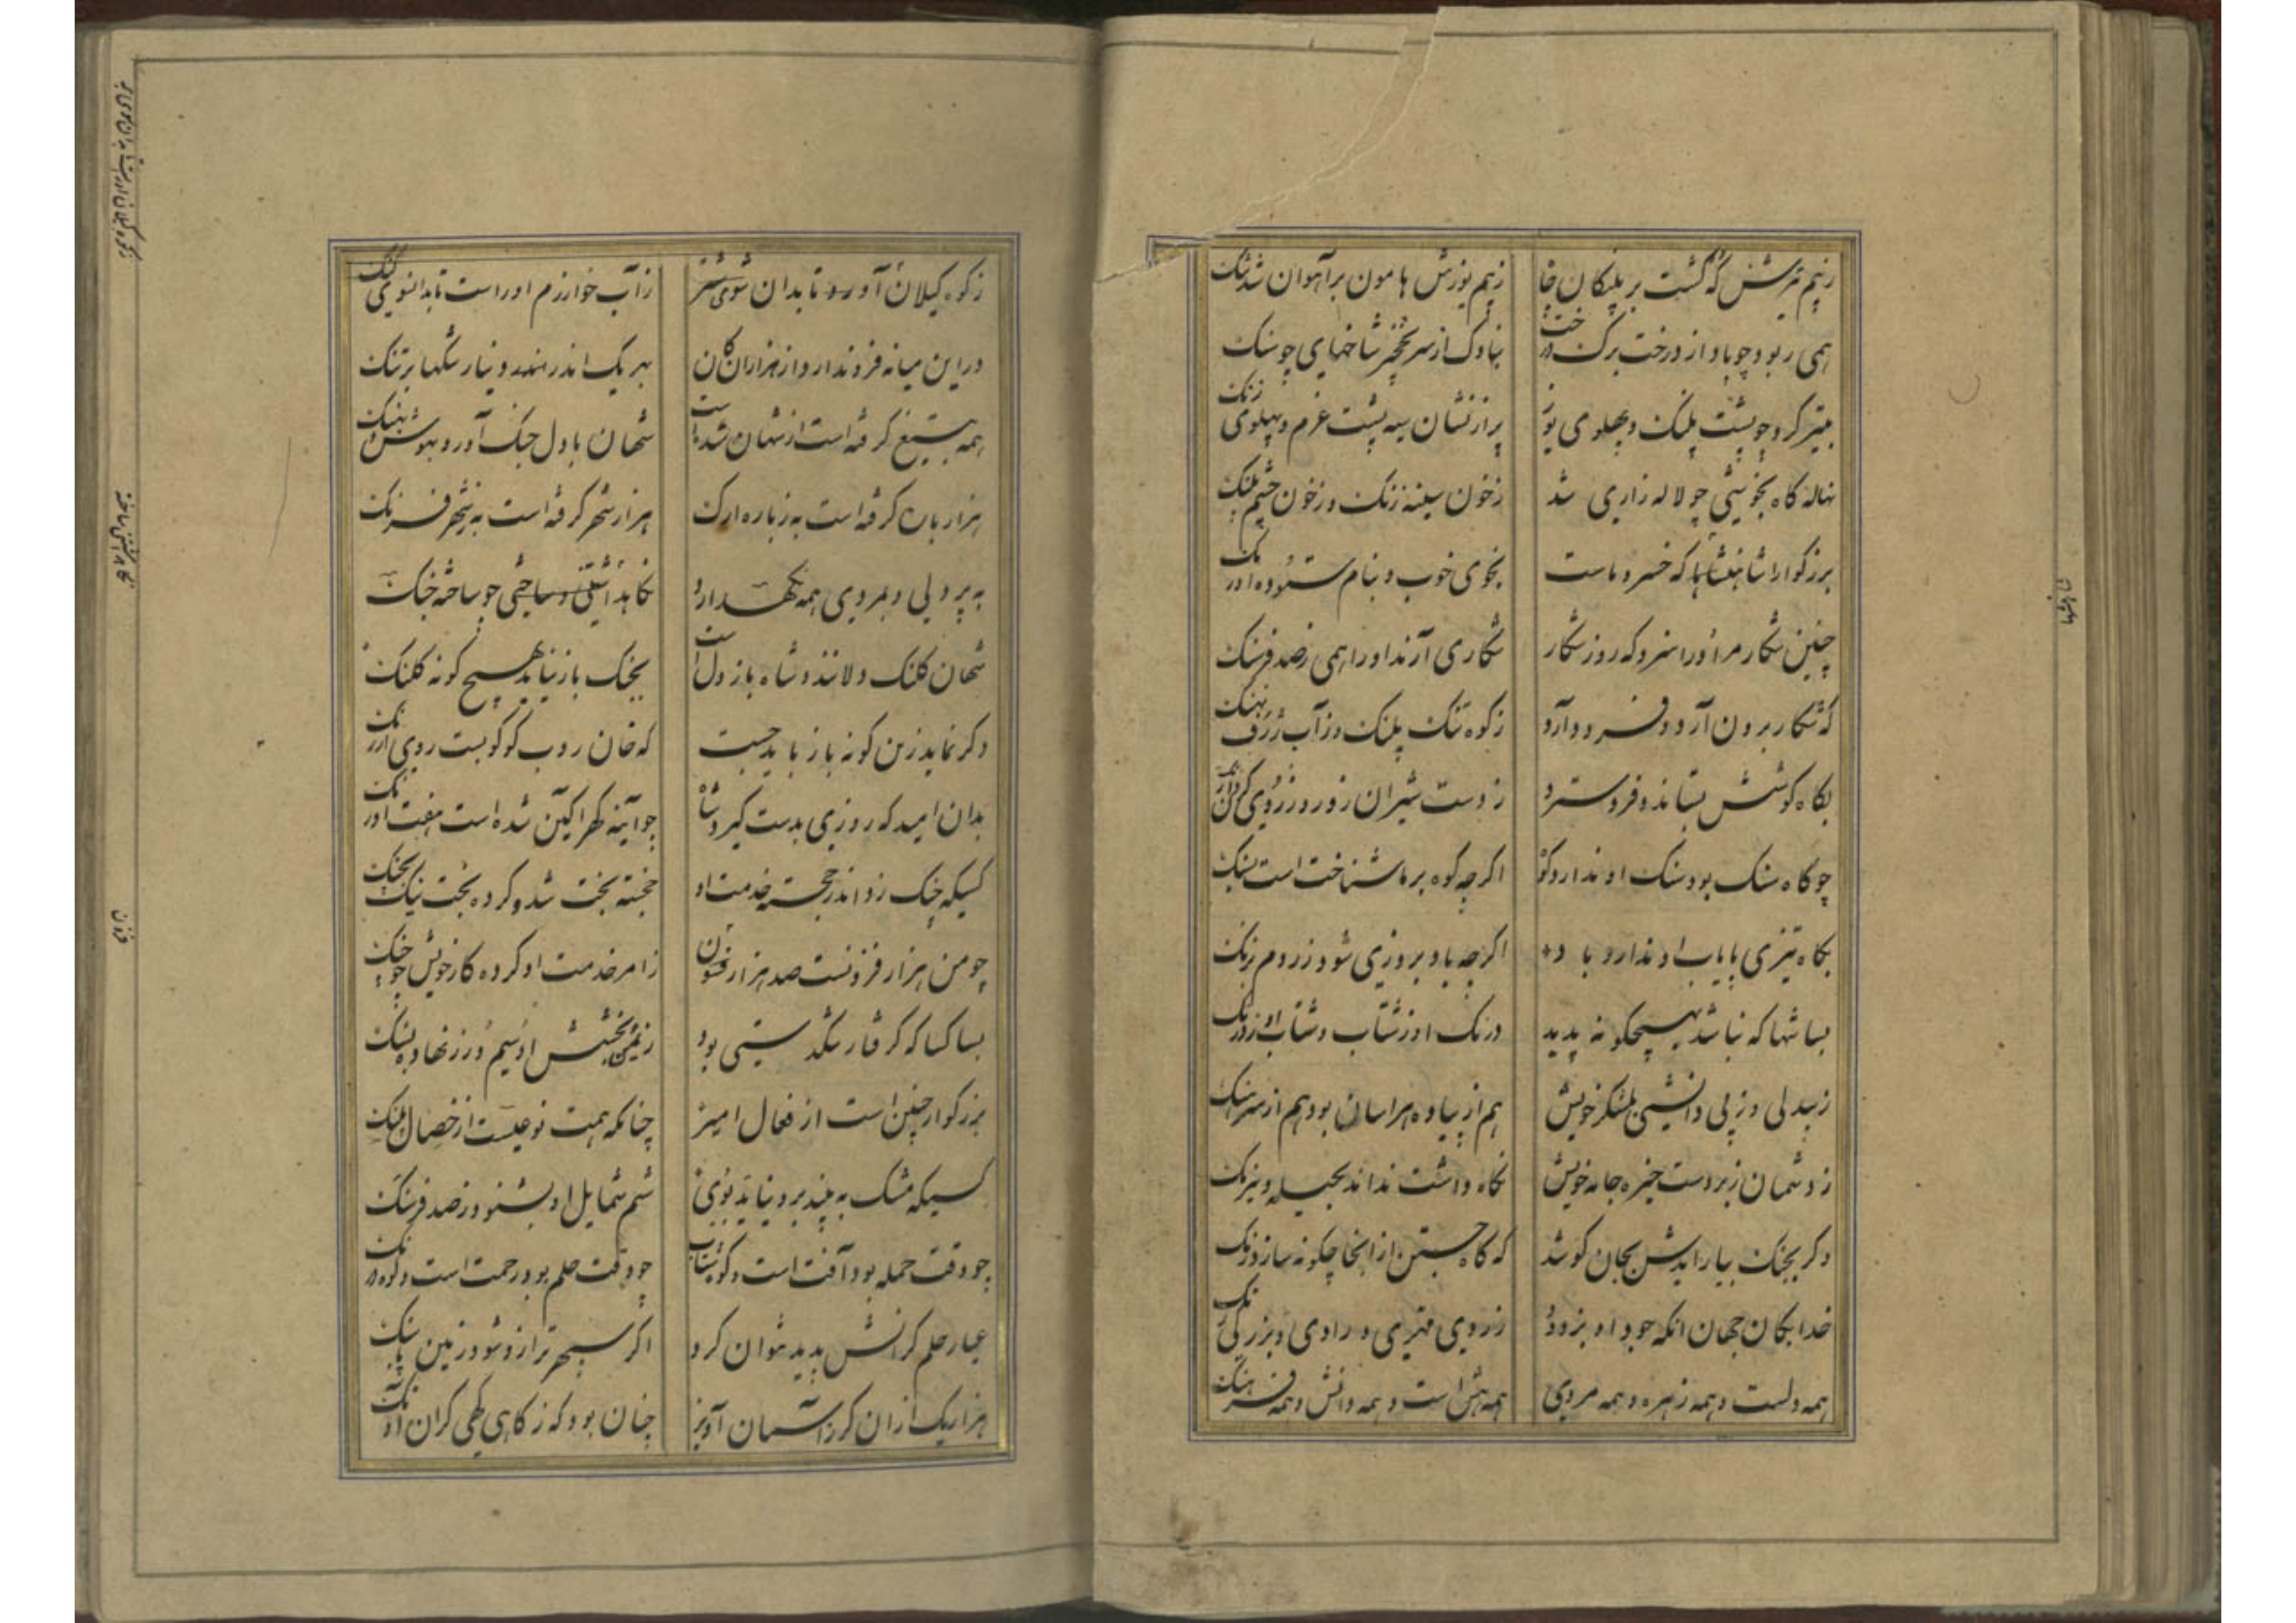 ز بیم تیرش که گشت بر پلنکان چا
ز بیم یوزش هامون بر آهوان شد تنک
همی ربود چو باد از درخت برک درخت
بناوک از سر نخجیر شاخهای چو سنک
بتیر کرد چو پشت پلنک و پهلوی یوز
پر از نشان سیه پشت غرم و پهلوی رنک
نهاله کاه بخوشی چو لاله زاری شد
ز خون سینه رنک و ز خون چشم پلنک
بزرکوارا شاهنشها که خسرو ماست
بخوی خوب و بنام ستوده اورنک
چنین شکار مر او را سزد که روز شکار
شکاری آرند او را همی ز صد فرسنک
که شکار برون آرد و فرود آرد
ز کوه تنک پلنک و ز آب ژرف نهنک
بکاه کوشش بستاند و فرو سترد
ز دست شیران زور و ز روی کردان رنک
چو کاه سنک بود سنک او ندارد کوه
اکرچه کوه بر ما شناخت است بسنک
بکاه تیزی پایاب او ندارد باد
اکرچه باد بروزی شود ز روم بزنک
بسا شها که نباشد بهیچکونه پدید
درنک او ز شتاب و شتاب او ز درنک
ز بیدلی و ز بی دانشی بلشکر خویش
هم از پیاده هراسان بود هم از سرهنک
ز دشمنان زبردست چیره خانه خویش
نکاه داشت نداند بحیله و نیرنک
وکر بجنک بیاراییش بجان کوشد
که کاه جستن از آنجا چکونه سازد رنک
خدایکان جهان آنکه جود او بزدود
ز روی مهتری و رادی و بزرکی زنک
همه دلست و همه زهره و همه مردی
همه هش است و همه دانش و همه فرهنک
ز کوه کیلان آورد تا بدان سوی
ز آب خوارزم او راست تا بدانسوی کنک
در این میانه فزون دارد از هزاران کان
بهر یک اندر دینار تنکها بر تنک
همه بتیغ کرفته است از شهان شده است
شهان با دل جنک آور و بهوش و بهنک
هزار باره کرفته است به ز باره ارک
هزار شهر کرفته است به ز شهر فرنک
به پردلی و بمردی همه نکهدارد
نکاهداشتنی چو ساخته خنک
شهان کلنک دلانند و شاه باز دل است
بجنک باز نیاید بهیچ کونه کلنک
وکر نماید زین کونه باز باید جست
که خان روبه کوکو بست روی ارنک
بدان امید که روزی بدست کیرد شاه
چو آینه کهرآکین شده است هفت اورنک
کسیکه چنک زد اندر خجسته خدمت او
خجسته بخت شد و کرده بخت نیک بچنک
چو من هزار فزونست صد هزار فزون
ز امر خدمت او کرده کار خویش چو چنک
بسا کسا که کرفتار تنکدستی بود
ز یمن بخشش او سیم و زر نهاد بسنک
بزرکوار چنین است از فعال امیر
چنانکه همت نوعیست از خصال پلنک
کسیکه مشک به بیند برو نیاید بوی
شم شمایل او بشنود ز صد فرسنک
چو وقت حمله بود آفت است و کوه شتاب
چو وقت حلم بود رحمت است و کوه درنک
عیار حلم کرانش پدید نتوان کرد
اکر سپهر ترازو شود زمین پاسنک
هزار یک از آن کرز آسمان آویز
چنان بود که ز کاهی کهی کران آونک